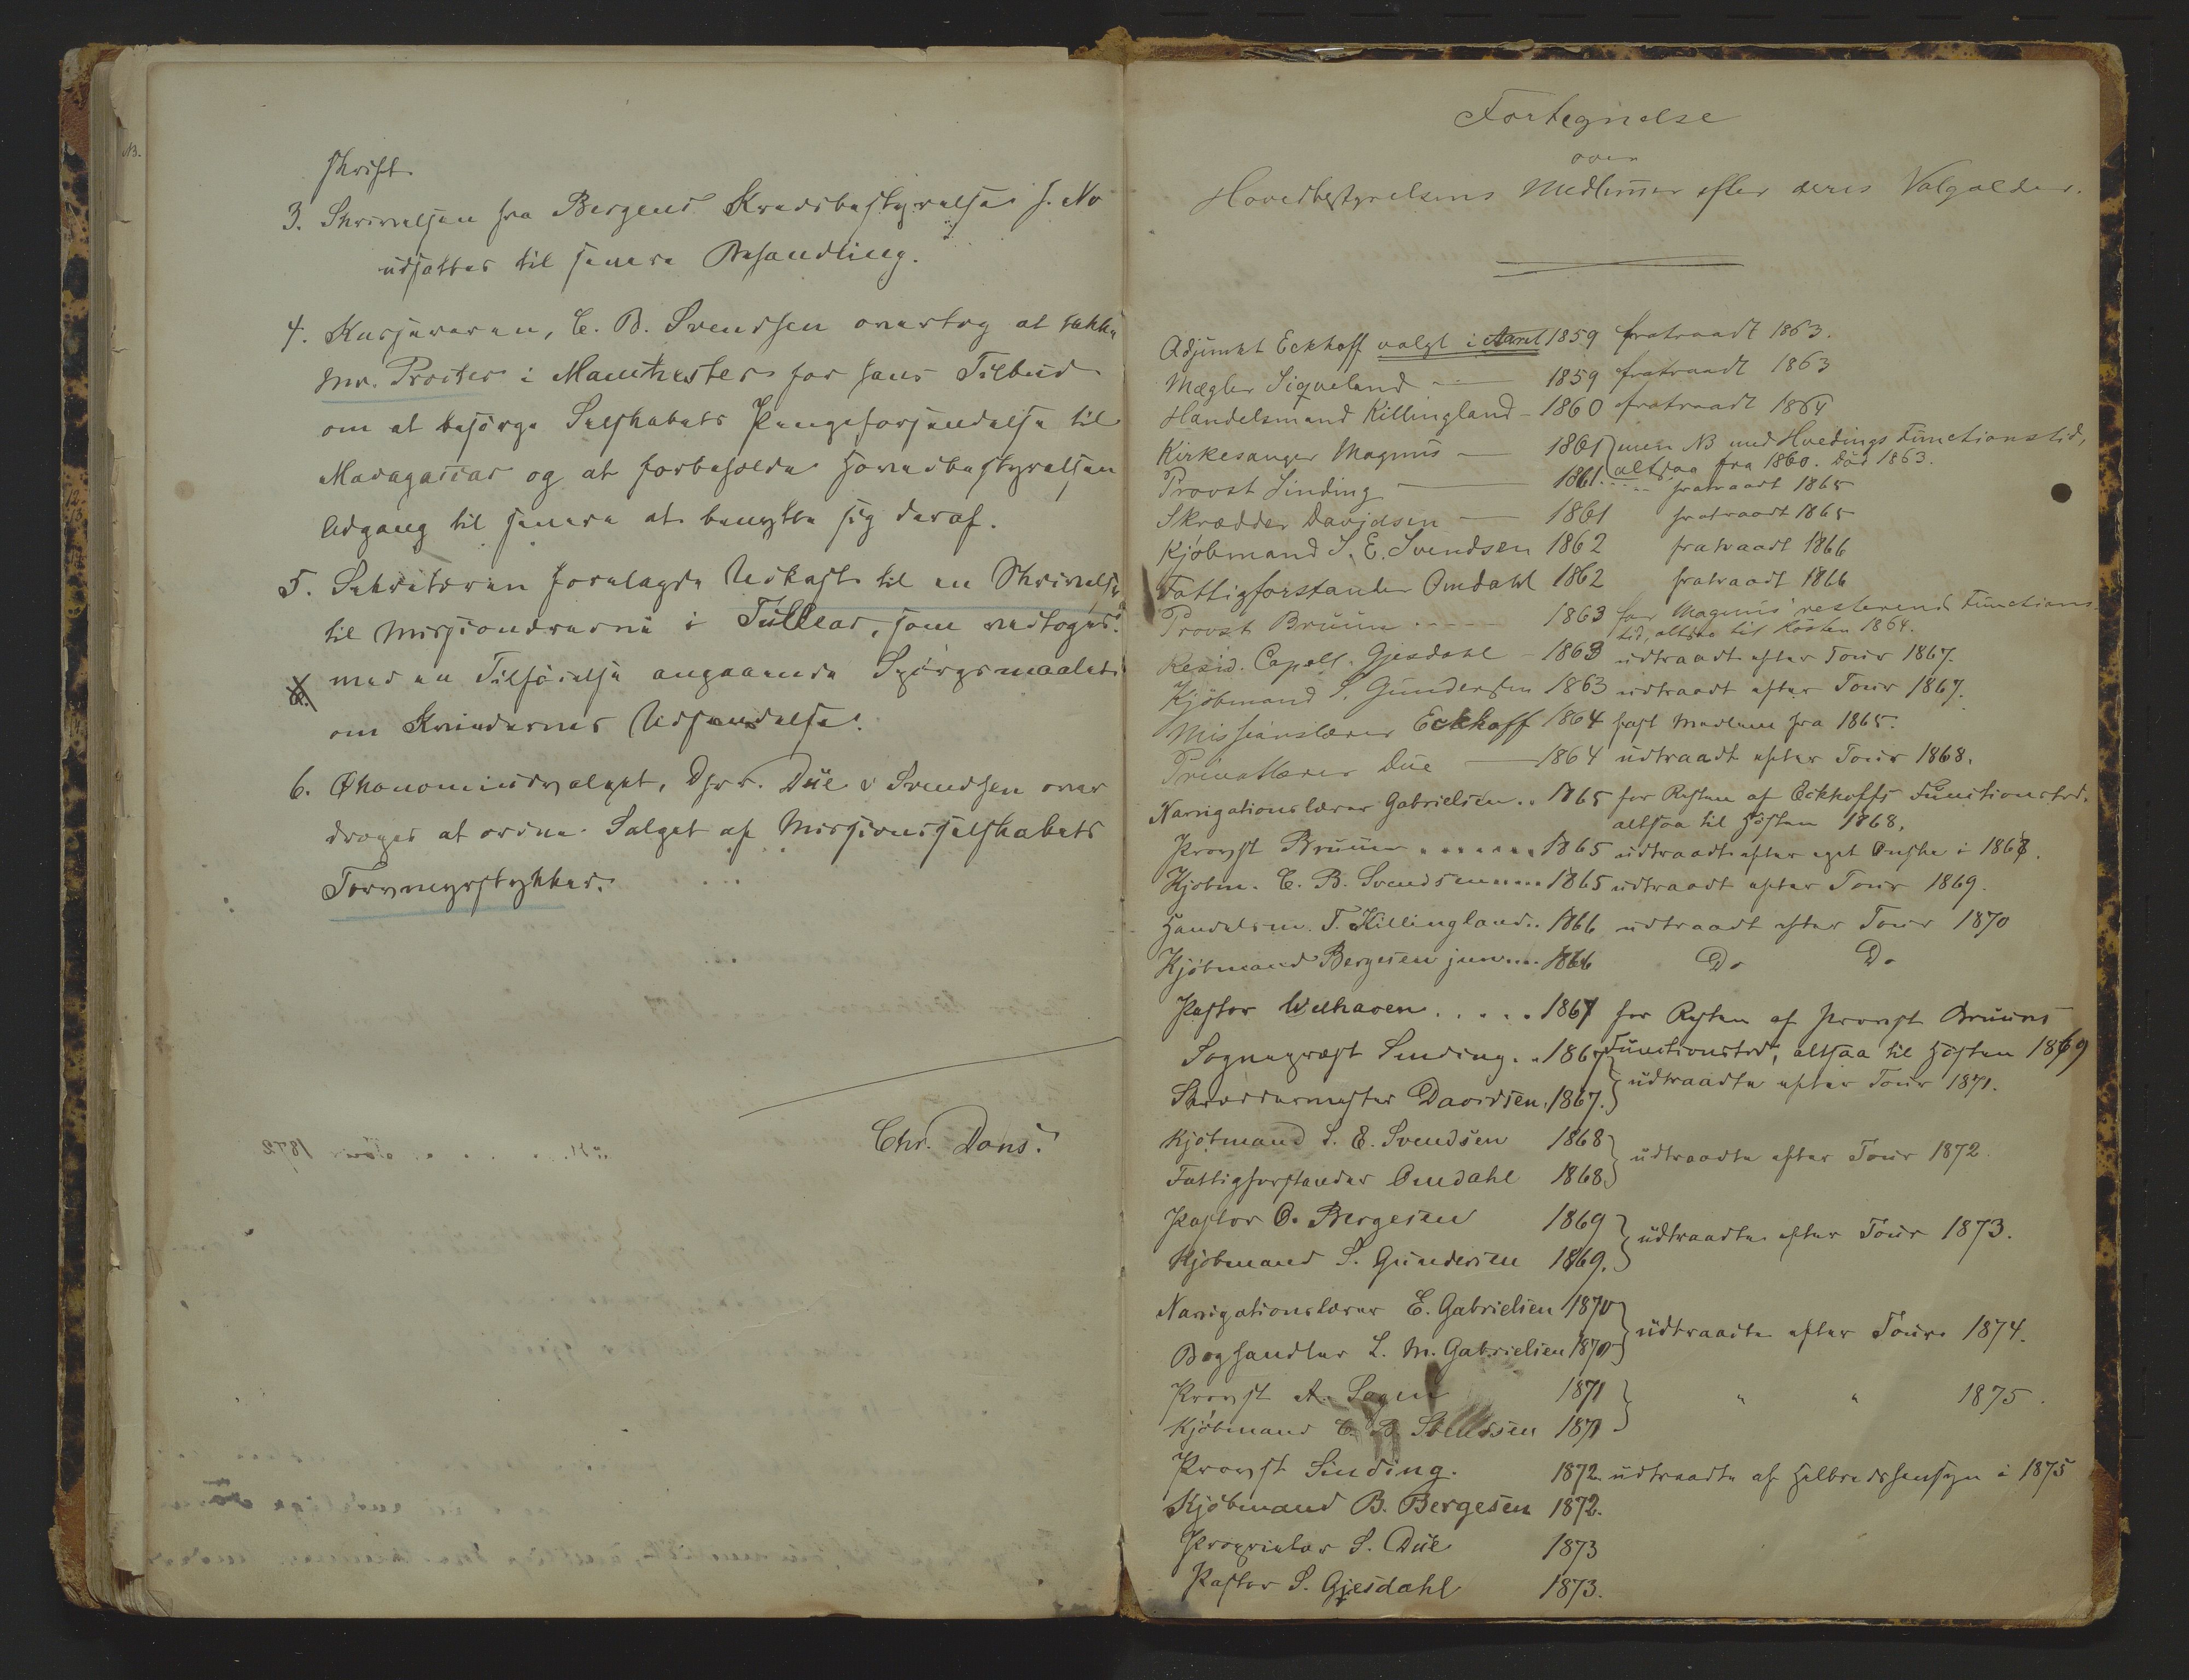 skrift.
3. Skrivelsen fra Bergens Kredsbestyrelse s. No
udsattes til senere Behandling.
4. Kassereren, C. B. Svendsen overtog at takke
Mr. Procter i Manchester for hans Tilbud
om at besörge Selskabets Pengeforsendelse til
Madagascar og at forbeholde Hovedbestyrelsen
Adgang til senere at benytte sig deraf.
5. Sekretæren forelagde Udkast til en Skrivelse
til Missionærerne i Tullear, som vedtoges
med en Tilföielse angaaende Spörgsmaalet
om Kvindernes Udsendelse.
6. Økonomiudvalget, Dhrr. Düe & Svendsen over
droges at ordne Salget af Missionsselskabets
Torvmyrstykker.
Chr. Dons.
NB.
Fortegnelse
over
Hovedbestyrelsens Medlemmer efter deres Valgalder.
Adjunkt Eckhoff valgt i Aaret 1859 fratraadt 1863.
Mægler Siqveland 1859 fratraadt 1863
Handelsmand Killingland 1860 fratraadt 1864
Kirkesanger Magnus 1861 men NB med Hoedings Functionstid,
altsaa fra 1860. Död 1863.
Provst Sinding 1861 fratraadt 1865
Skrædder Davidsen 1861 fratraadt 1865
Kjöbmand S. E. Svendsen 1862 fratraadt 1866
Fattigforstander Omdahl 1862 fratraadt 1866
Provst Bruun 1863 for Magnus' resterende Functions
tid, altsaa til Hösten 1864.
Resid. Capell. Gjesdahl 1863 udtraadt efter Tour 1867.
Kjöbmand S. Gundersen 1863 udtraadt efter Tour 1867.
Missionslærer Eckhoff 1864 fast Medlem fra 1865.
Privatlærer Due 1864 udtraadt efter Tour 1868.
Navigationslærer Gabrielsen.. 1865 for Resten af Eckhoffs Functionstid,
altsaa til Hösten 1868.
Provst Bruun ....... 1865 udtraadt efter eget Önske i 1867.
Kjöbm. C. B. Svendsen.... 1865 udtraadt efter Tour 1869.
Handelsm. T. Killingland.. 1866 udtraadt efter Tour 1870
Kjöbmand Bergesen jun.... 1866 Do Do
Pastor Welhaven ..... 1867 for Resten af Provst Bruuns
Functionstid, altsaa til Hösten 1869
Sognepræst Sinding.. 1867
Skræddermester Davidsen. 1867. udtraadte efter Tour 1871.
Kjöbmand S. E. Svendsen 1868
Fattigforstander Omdahl 1868 udtraadte efter Tour 1872.
Pastor O. Bergesen 1869
Kjöbmand S. Gundersen 1869. udtraadte efter Tour 1873.
Navigationslærer E. Gabrielsen 1870
Boghandler L. M. Gabrielsen 1870 udtraadte efter Tour 1874.
Provst A. Sagen 1871 " " 1875.
Kjöbmand C. B. Svendsen 1871
Provst Sinding. 1872. udtraadte af Helbredshensyn i 1875
Kjöbmand B. Bergesen 1872.
Proprietær S. Düe 1873
Pastor S. Gjesdahl 1873.